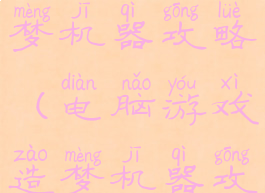 mèng jī qì gōng lüè
梦机器攻略
diàn nǎo yóu xì
（电脑游戏
zào mèng jī qì gōng
造梦机器攻